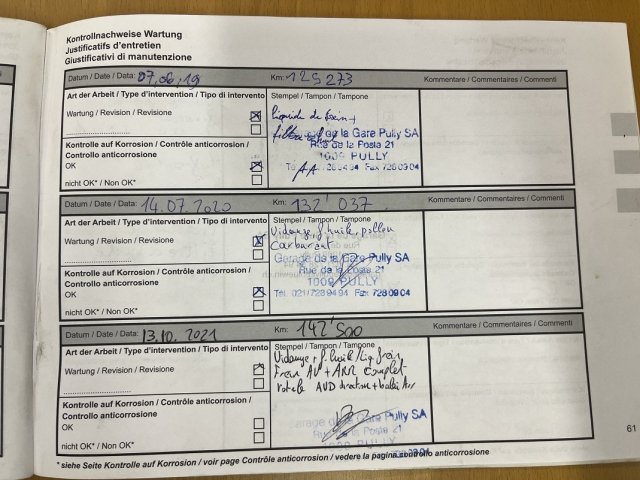 Kontrollnachweise Wartung
Justificatifs d'entretien
Giustificativi di manutenzione
Datum / Date / Data: 07.06.19 Km: 125 273 Kommentare / Commentaires / Commenti
Art der Arbeit / Type d'intervention / Tipo di intervento Stempel / Tampon / Tampone
Wartung / Revision / Revisione Liquide de frein +
Garage de la Gare Pully SA
Kontrolle auf Korrosion / Contrôle anticorrosion / Rue de la Poste 21
Controllo anticorrosione 1009 PULLY
OK Fax 728 09 04
nicht OK* / Non OK*
Datum / Date / Data: 14.07.2020 Km: 132'037 Kommentare / Commentaires / Commenti
Art der Arbeit / Type d'intervention / Tipo di intervento Stempel / Tampon / Tampone
Vidange f. huile, pollen
Wartung / Revision / Revisione Carburant
Garage de la Gare Pully SA
Kontrolle auf Korrosion / Contrôle anticorrosion / Rue de la Poste 21
Controllo anticorrosione 1009 PULLY
OK Tél. 021/728 94 94 Fax 728 09 04
nicht OK* / Non OK*
Datum / Date / Data: 13.10.2021 Km: 142'500 Kommentare / Commentaires / Commenti
Art der Arbeit / Type d'intervention / Tipo di intervento Stempel / Tampon / Tampone
Vidange + f. huile / liq frein
Wartung / Revision / Revisione Frein AV + ARR complet
rotule AVD direction + balai Arr
Kontrolle auf Korrosion / Contrôle anticorrosion /
Controllo anticorrosione Garage de la Gare Pully SA
OK Rue de la Poste 21
nicht OK* / Non OK* 1009 PULLY
61
*siehe Seite Kontrolle auf Korrosion / voir page Contrôle anticorrosion / vedere la pagina controllo anticorrosione